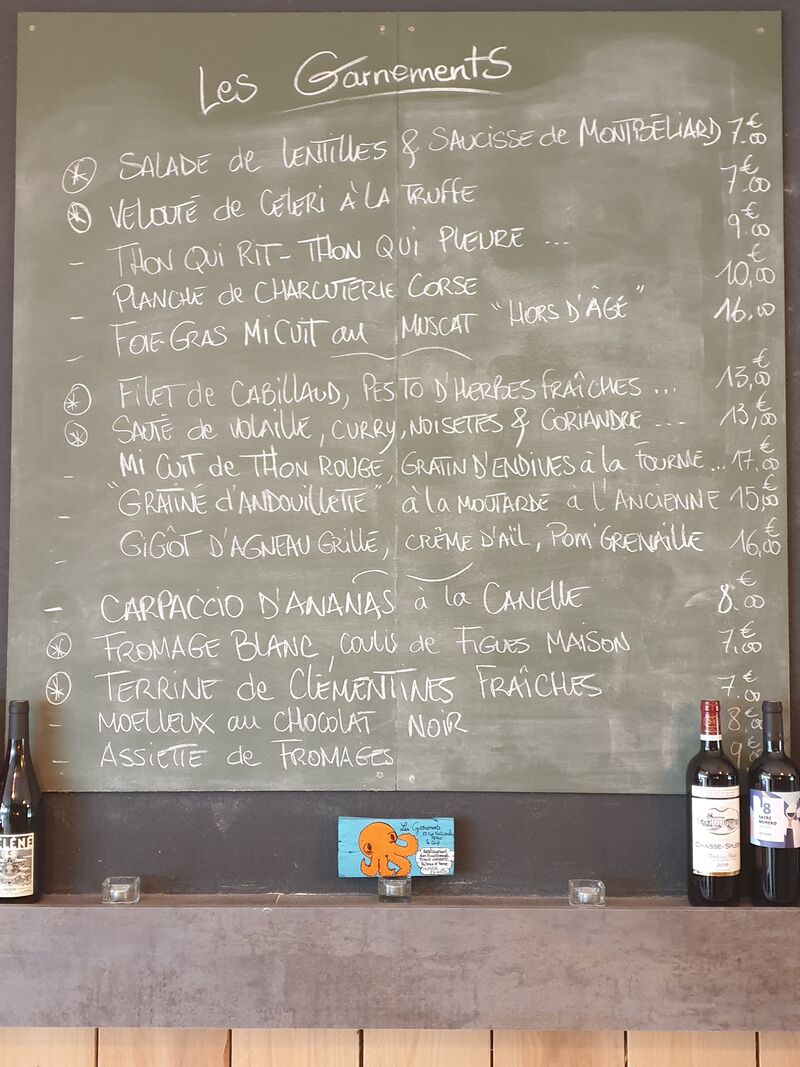 Les Garnements
SALADE de LENTILLES & SAUCISSE de MONTBÉLIARD 7.€00
VELOUTÉ de CELERI À LA TRUFFE 7.€00
- THON QUI RIT - THON QUI PLEURE ... 9.€00
- PLANCHE de CHARCUTERIE CORSE 10,€00
- FOIE-GRAS MI CUIT au MUSCAT "HORS D'ÂGÉ" 16.00
FILET de CABILLAUD, PESTO D'HERBES FRAÎCHES ... 13,€00
SAUTÉ de VOLAILLE, CURRY, NOISETTES & CORIANDRE ... 13,€00
- MI CUIT de THON ROUGE, GRATIN D'ENDIVES à la FOURME ... 17.€00
- "GRATINÉ d'ANDOUILLETTE" à la MOUTARDE a l'ANCIENNE 15,€00
- GIGÔT D'AGNEAU GRILLE, CRÈME D'AÏL, POM'GRENAILLE 16,€00
- CARPACCIO D'ANANAS à la CANELLE 8.€00
FROMAGE BLANC, coulis de FIGUES MAISON 7,€00
TERRINE de CLÉMENTINES FRAÎCHES 7.€00
- MOELLEUX au CHOCOLAT NOIR 8,€
- ASSIETTE de FROMAGES 9
Les Garnements
CHASSE-SPLEEN
2018
8
SACRÉ
NUMÉRO